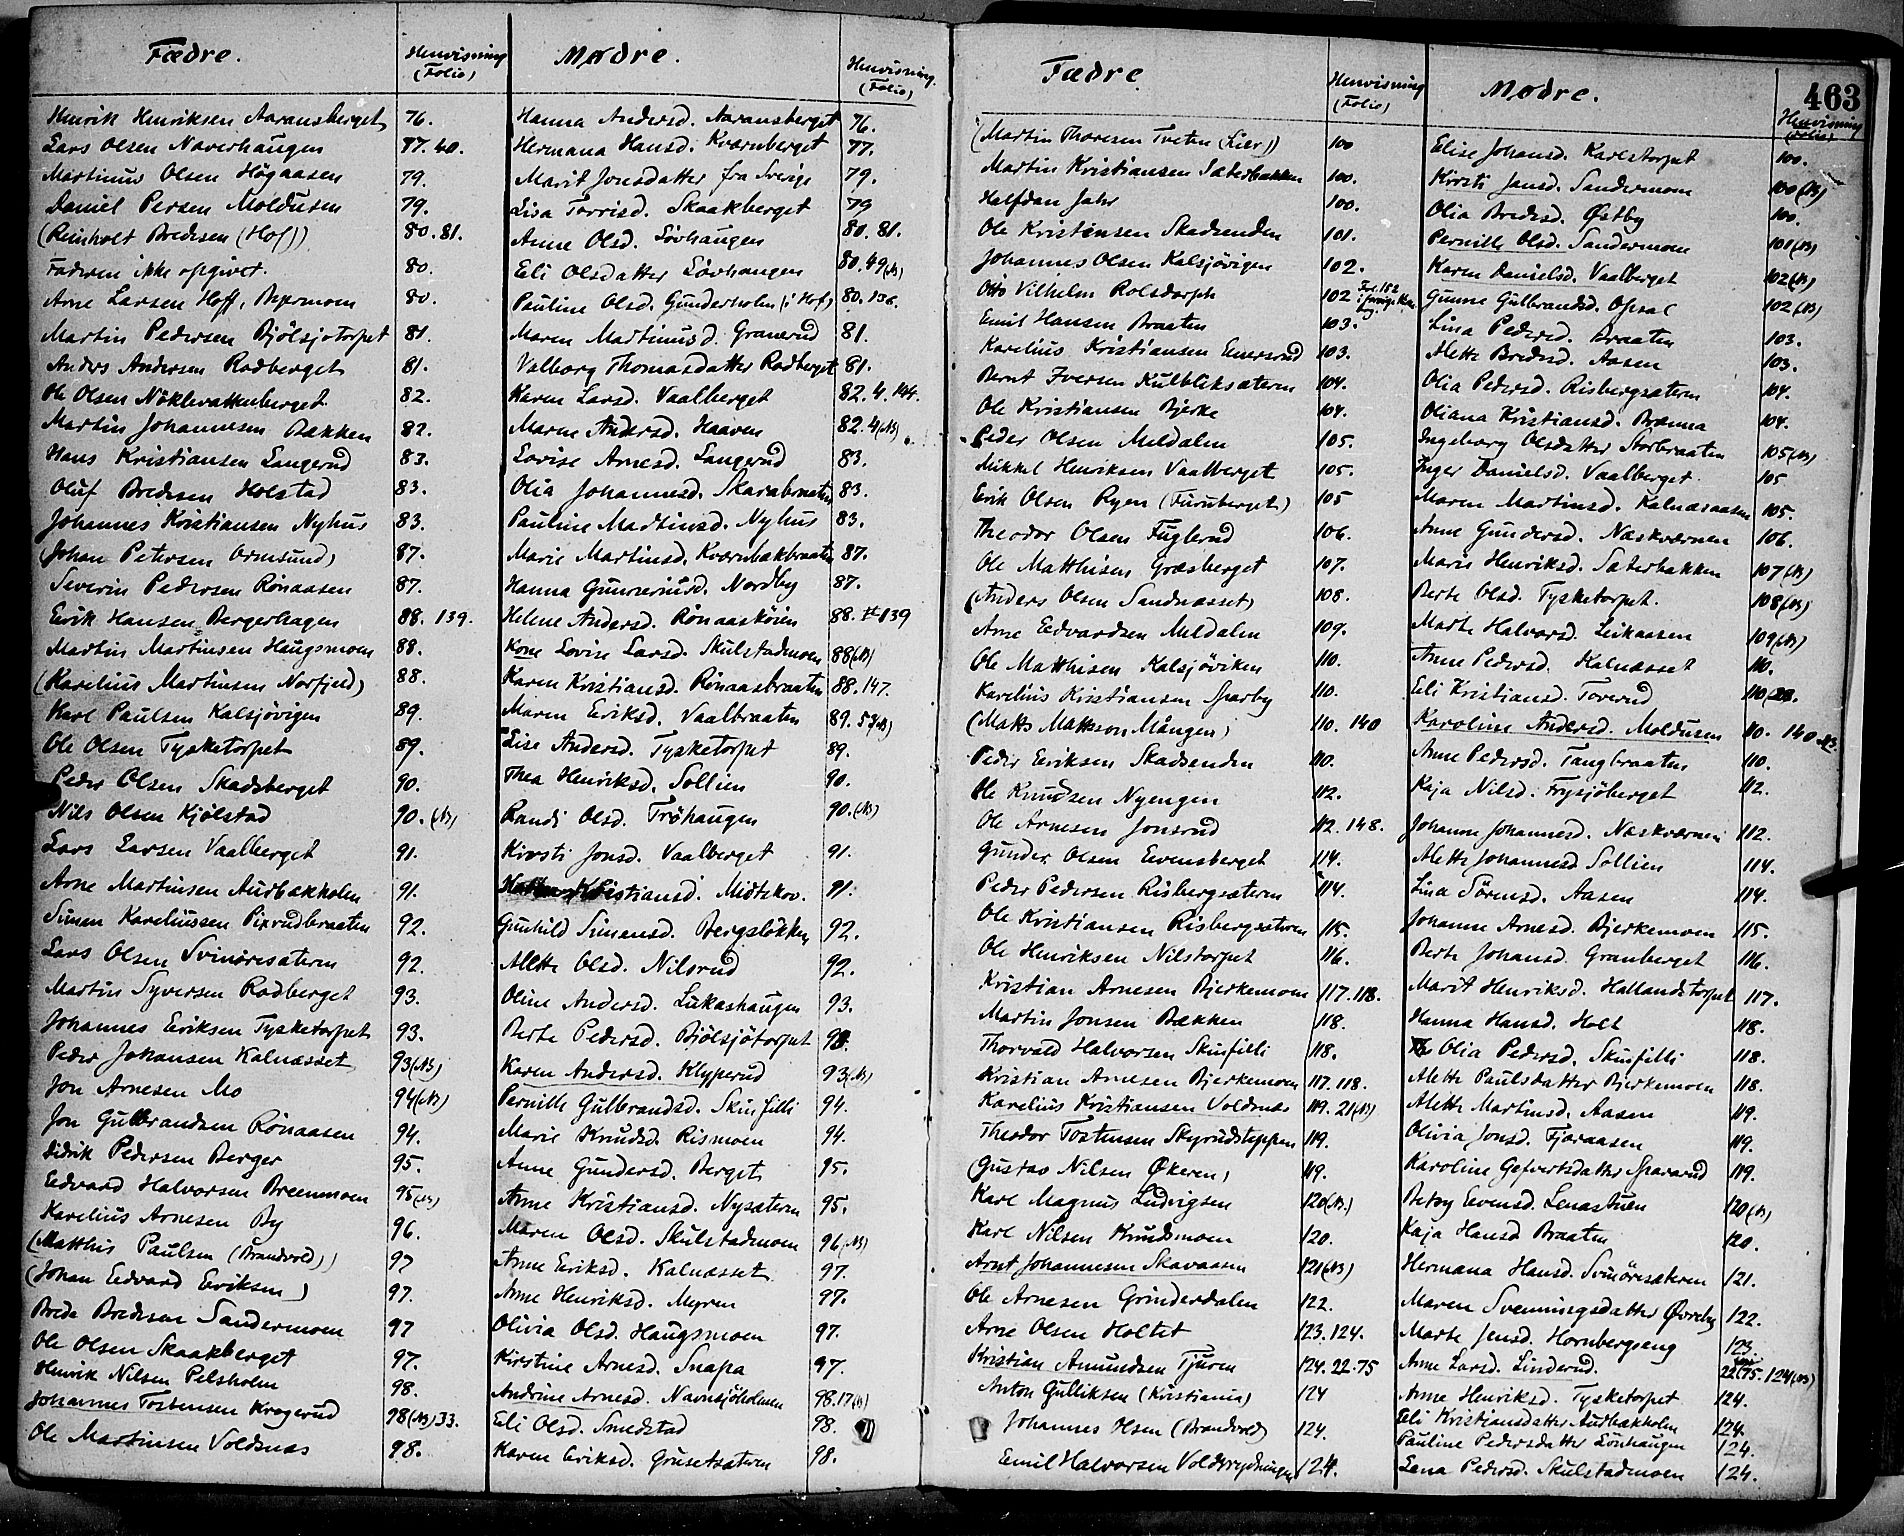 Fædre. Henvisning (Folio) Mødre. Henvisning. (Folio)
Henrik Henriksen Aaransberget 76. Hanna Andersd. Aaransberget 76.
Lars Olsen Naverhaugen 77. 40. Hermana Hansd. Kværnberget 77.
Martinus Olsen Högaasen 79. Marit Jonsdatter fra Sverige 79.
Daniel Persen Moldusen 79. Lisa Torrisd. Skaakberget 79
(Reinholt Bredesen (Hof)) 80. 81. Anne Olsd. Lövhaugen 80. 81.
Faderen ikke opgivet. 80. Eli Olsdatter Lövhaugen 80. 49 (N)
Arne Larsen Hoff, 80. Pauline Olsd. Gunderholen (i Hof) 80. 136.
Martin Pedersen Bjölsjötorpet 81. Maren Martinusd. Graverud 81.
Anders Andersen Rodberget 81. Valborg Thomasdatter Rodberget 81.
Ole Olsen Nöklevatkenberget 82. Karen Larsd. Vaalberget 82. 4. 144.
Martin Johannesen Bakken 82. Maren Andersd. Haaven 82. 4 (N)
Hans Kristiansen Langerud 83. Lovise Arnesd. Langerud 83.
Oluf Bredesen Holstad 83. Olia Johannesd. Skarabraaten 83.
Johannes Kristiansen Nyhus 83. Pauline Martinsd. Nyhus 83.
(Johan Petersen Ormsund) 87. Marie Martinsd. Kværnbækbraaten 87.
Severin Pedersen Rönaasen 87. Hanna Gunneriusd. Nordby 87.
Erik Hansen Bergerhagen 88. 139. Helene Andersd. Rönaasköien 88. 139
Martin Martinsen Haugsmoen 88. Kone Lovise Larsd. Skulstadmoen 88 (N)
(Karelius Martinsen Norfjeld) 88. Karen Kristiansd. Rönaasbraaten 88. 147.
Karl Paulsen Kalsjövigen 89. Maren Eriksd. Vaalbraaten 89. 53 (N)
Ole Olsen Tysketorpet 89. Lise Andersd. Tysketorpet 89.
Peder Olsen Skadsberget 90. Thea Henriksd. Sollien 90.
Nils Olsen Kjölstad 90. (N) Randi Olsd. Tröhaugen 90. (N)
Lars Larsen Vaalberget 91. Kirsti Jonsd. Vaalberget 91.
Arne Martinsen Aurbakholen 91. Kristiansd. Midtskov. 91.
Simen Kareliussen Pixrudbraaten 92. Gunhild Simensd. Bergslökken 92.
Lars Olsen Svinöresæteren 92. Alette Olsd. Nilsrud 92.
Martin Syversen Rodberget 93. Oline Andersd. Lukashaugen 93.
Johannes Eriksen Tysketorpet 93. Berte Pedersd. Bjölsjötorpet 93.
Peder Johansen Kalnæsset 93 (N) Karen Andersd. Klypperud 93 (N)
Jon Arnesen Mo 94 (N) Pernille Gulbrandsd. Skinfilli 94.
Jon Gulbrandsen Rönaasen 94. Marie Knudsd. Rismoen 94.
Didrik Pedersen Berger 95. Anne Gundersd. Berget 95.
Edvard Halvorsen Breenmoen 95 (N) Anne Kristiansd. Nysæteren 95.
Karelius Arnesen By 96. Maren Olsd. Skulstadmoen 96 (N)
(Matthis Paulsen (Brandvold)) 97 Anne Eriksd. Kalnæsset 97.
(Johan Edvard Eriksen) 97. Anne Henriksd. Myren 97.
Brede Bredesen Sandermoen 97 Olivia Olsd. Haugsmoen 97.
Ole Olsen Skaakberget 97. Kirstine Arnesd. Snapa 97.
Henrik Nilsen Pelsholen 98. Andrine Arnesd. Navnsjöholmen 98. 17 (N)
Johannes Tostensen Krogerud 98 (N) 33. Eli Olsd. Smedstad 98.
Ole Martinsen Voldsnæs 98. Karen Eriksd. Grusetsæteren 98.
463
Fædre Henvisning (Folio) Mødre. Henvisning (Folio)
(Martin Thoresen Tveten (Lier)) 100 Elise Johansd. Karlstorpet 100.
Martin Kristiansen Sæterbakken 100. Kirsti Jansd. Sandermoen 100 (N)
Halfdan Jahr 100. Olia Bredesd. Østby 100.
Ole Kristensen Skadsenden 101. Pernille Olsd. Sandermoen 101 (N)
Johannes Olsen Kalsjövigen 102. Karen Danielsd. Vaalberget 102 (N)
Otto Vilhelm Rolsdorph 102 Gunne Gulbrandsd. Opsal 102 (N)
Emil Hansen Braaten 103. Lina Pedersd. Braaten 103.
Karelius Kristiansen Enersrud 103. Alette Bredesd. Aasen 103.
Bernt Iversen Kulbliksæteren 104. Olia Pedersd. Risbergsæteren 104.
Ole Kristiansen Bjerke 104. Oliana Kristiansd. Brænna 104.
Peder Olsen Meldalen 105. Ingeborg Olsdatter Storbraaten 105 (N)
Mikkel Henriksen Vaalberget 105. Inger Danielsd. Vaalberget 105
Erik Olsen Ryen (Furuberget) 105 Maren Martinsd. Kalnæsaasen 105.
Theodor Olsen Fuglerud 106. Anne Gundersd. Næskværnen 106.
Ole Matthisen Græsberget 107. Marie Henriksd. Sæterbakken 107 (N)
(Anders Olsen Sandnæsset) 108. Berte Olsd. Tysketorpet. 108 (N)
Arne Edvardsen Meldalen 109. Marte Halvorsd. Leikaasen 109 (N)
Ole Matthisen Kalsjöviken 110. Anne Pedersd. Kalnæsset 110.
Karelius Kristiansen Sparby 110. Eli Kristiansd. Toverud 110
(Matts Mattsson Mången) 110. 140 Karoline Andersd. Moldusen 110. 140
Peder Eriksen Skadsenden 110. Anne Pedersd. Tangbraaten 110.
Ole Knudsen Nyengen 112. Kaja Nilsd. Frysjöberget 112.
Ole Arnesen Jonsrud 112. 148. Johanne Johannesd. Næskværnen 112.
Gunder Olsen Evensberget 114. Alette Johannesd Sollien 114.
Peder Pedersen Risbergsæteren 114. Lina Sörensd. Aasen 114.
Ole Kristiansen Risbergsæteren 115. Johanne Arnesd. Bjerkemoen 115.
Ole Henriksen Nilstorpet 116. Berte Johansd. Granberget 116.
Kristian Arnesen Bjerkemoen 117. 118. Marit Henriksd. Hallandstorpet 117.
Martin Jonsen Bækken 118. Hanna Hansd. Holt 118.
Thorvald Halvorsen Skinfilli 118. Olia Pedersd. Skinfilli 118.
Kristian Arnesen Bjerkemoen 117. 118. Alette Paulsdatter Bjerkemoen 118.
Karelius Kristiansen Voldsnæs 119. 21 (N) Alette Martinsd. Aasen 119.
Theodor Tostensen Skyrudsteppen 119. Olivia Jonsd. Fjæraasen 119.
(Gustav Nilsen Økeren) 119. Karoline Gefvertsdatter Sparerud 119.
Karl Magnus Ludvigsen 120 (N.) Betsy Evensd. Lenastuen 120 (N)
Karl Nilsen Knudsmoen 120. Kaja Hansd Braaten 120.
Arnt Johannesen Skavaasen 121 (N) Hermana Hansd. Svinöresæteren 121.
Ole Arnesen Grinderdalen 122. Maren Svenningsdatter Øvreby 122.
Arne Olsen Holtet 123. 124. Marte Jensd. Hornbergseng 123.
Kristian Amundsen Tjuren 124. 22. 75 Anne Larsd. Linderud. 22. 75. 124 (N)
Anton Gulliksen (Kristiania) 124 Anne Henriksd. Tysketorpet 124.
Johannes Olsen (Brandvold) 124. Eli Kristiansdatter Aurbækholen 124.
Pauline Pedersdatter Lönhaugen 124.
Emil Halvorsen Voldsrydningen 124. Lena Pedersd. Skulstadmoen 124.